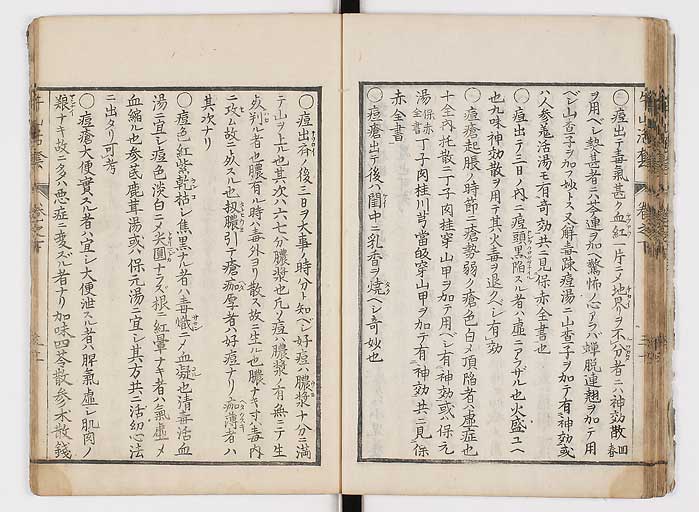 ○痘出テ毒氣甚ク血紅一片ニメ地界リヲ不分者ニハ神効散四春
ヲ用ベシ熱甚者ニハ芩連ヲ加ヘ驚怖ノ心アラバ蝉脱連翹ヲ加ヘテ用
ベシ山査子ヲ加フ妙トス又解毒踈痘湯ニ山査子ヲ加テ有神効或
ハ人参羗活湯モ有竒効共ニ見保赤全書也
○痘出テ三日ノ内ニ痘頭黒陷スル者ハ虚ニアラザル也火盛ユヘ
也九味神効散ヲ用テ其火毒ヲ退クベシ有効
○痘瘡起脹ノ時節ニ瘡勢弱ク瘡色白メ頂陷者ハ虚症也
十全内托散ニ丁子肉桂穿山甲ヲ加テ用ベシ有神効或ハ保元
湯保赤全書丁子肉桂川芎當皈穿山甲ヲ加テ有神効共ニ見保
赤全書
○痘瘡出テ後ハ閨中ニ乳香ヲ焼ベシ竒妙也
○痘出齊ノ後三日ヲ大事ノ時分ト知ベシ好痘ハ膿漿十分ニ満
テ山ヲ上ル也其次ハ六七分膿漿也凡ソ痘ハ膿漿ノ有無ニテ生
死判ル者也膿有ル時ハ毒外ヨリ散ス故ニ生ル也膿ナキ寸ハ毒内
ニ攻ム故ニ死スル也扨膿引テ瘡痂厚者ハ好痘ナリ痂薄者ハ
其次ナリ
○痘色紅紫乾枯シ焦黒ナル者ハ毒熾ニメ血凝也清毒活血
湯ニ宜シ痘色淡白ニメ尖圓ナラズ根ニ紅暈ナキ者ハ氣虚メ
血縮ル也参芪鹿茸湯或ハ保元湯ニ宜シ其方共ニ活幼心法
ニ出タリ可考
○痘瘡大便實スル者ハ宜シ大便泄スル者ハ脾氣虚シ肌肉ノ
ナキ故ニ多ハ悪症ニ変ズル者ナリ加味四苓散参朮散錢